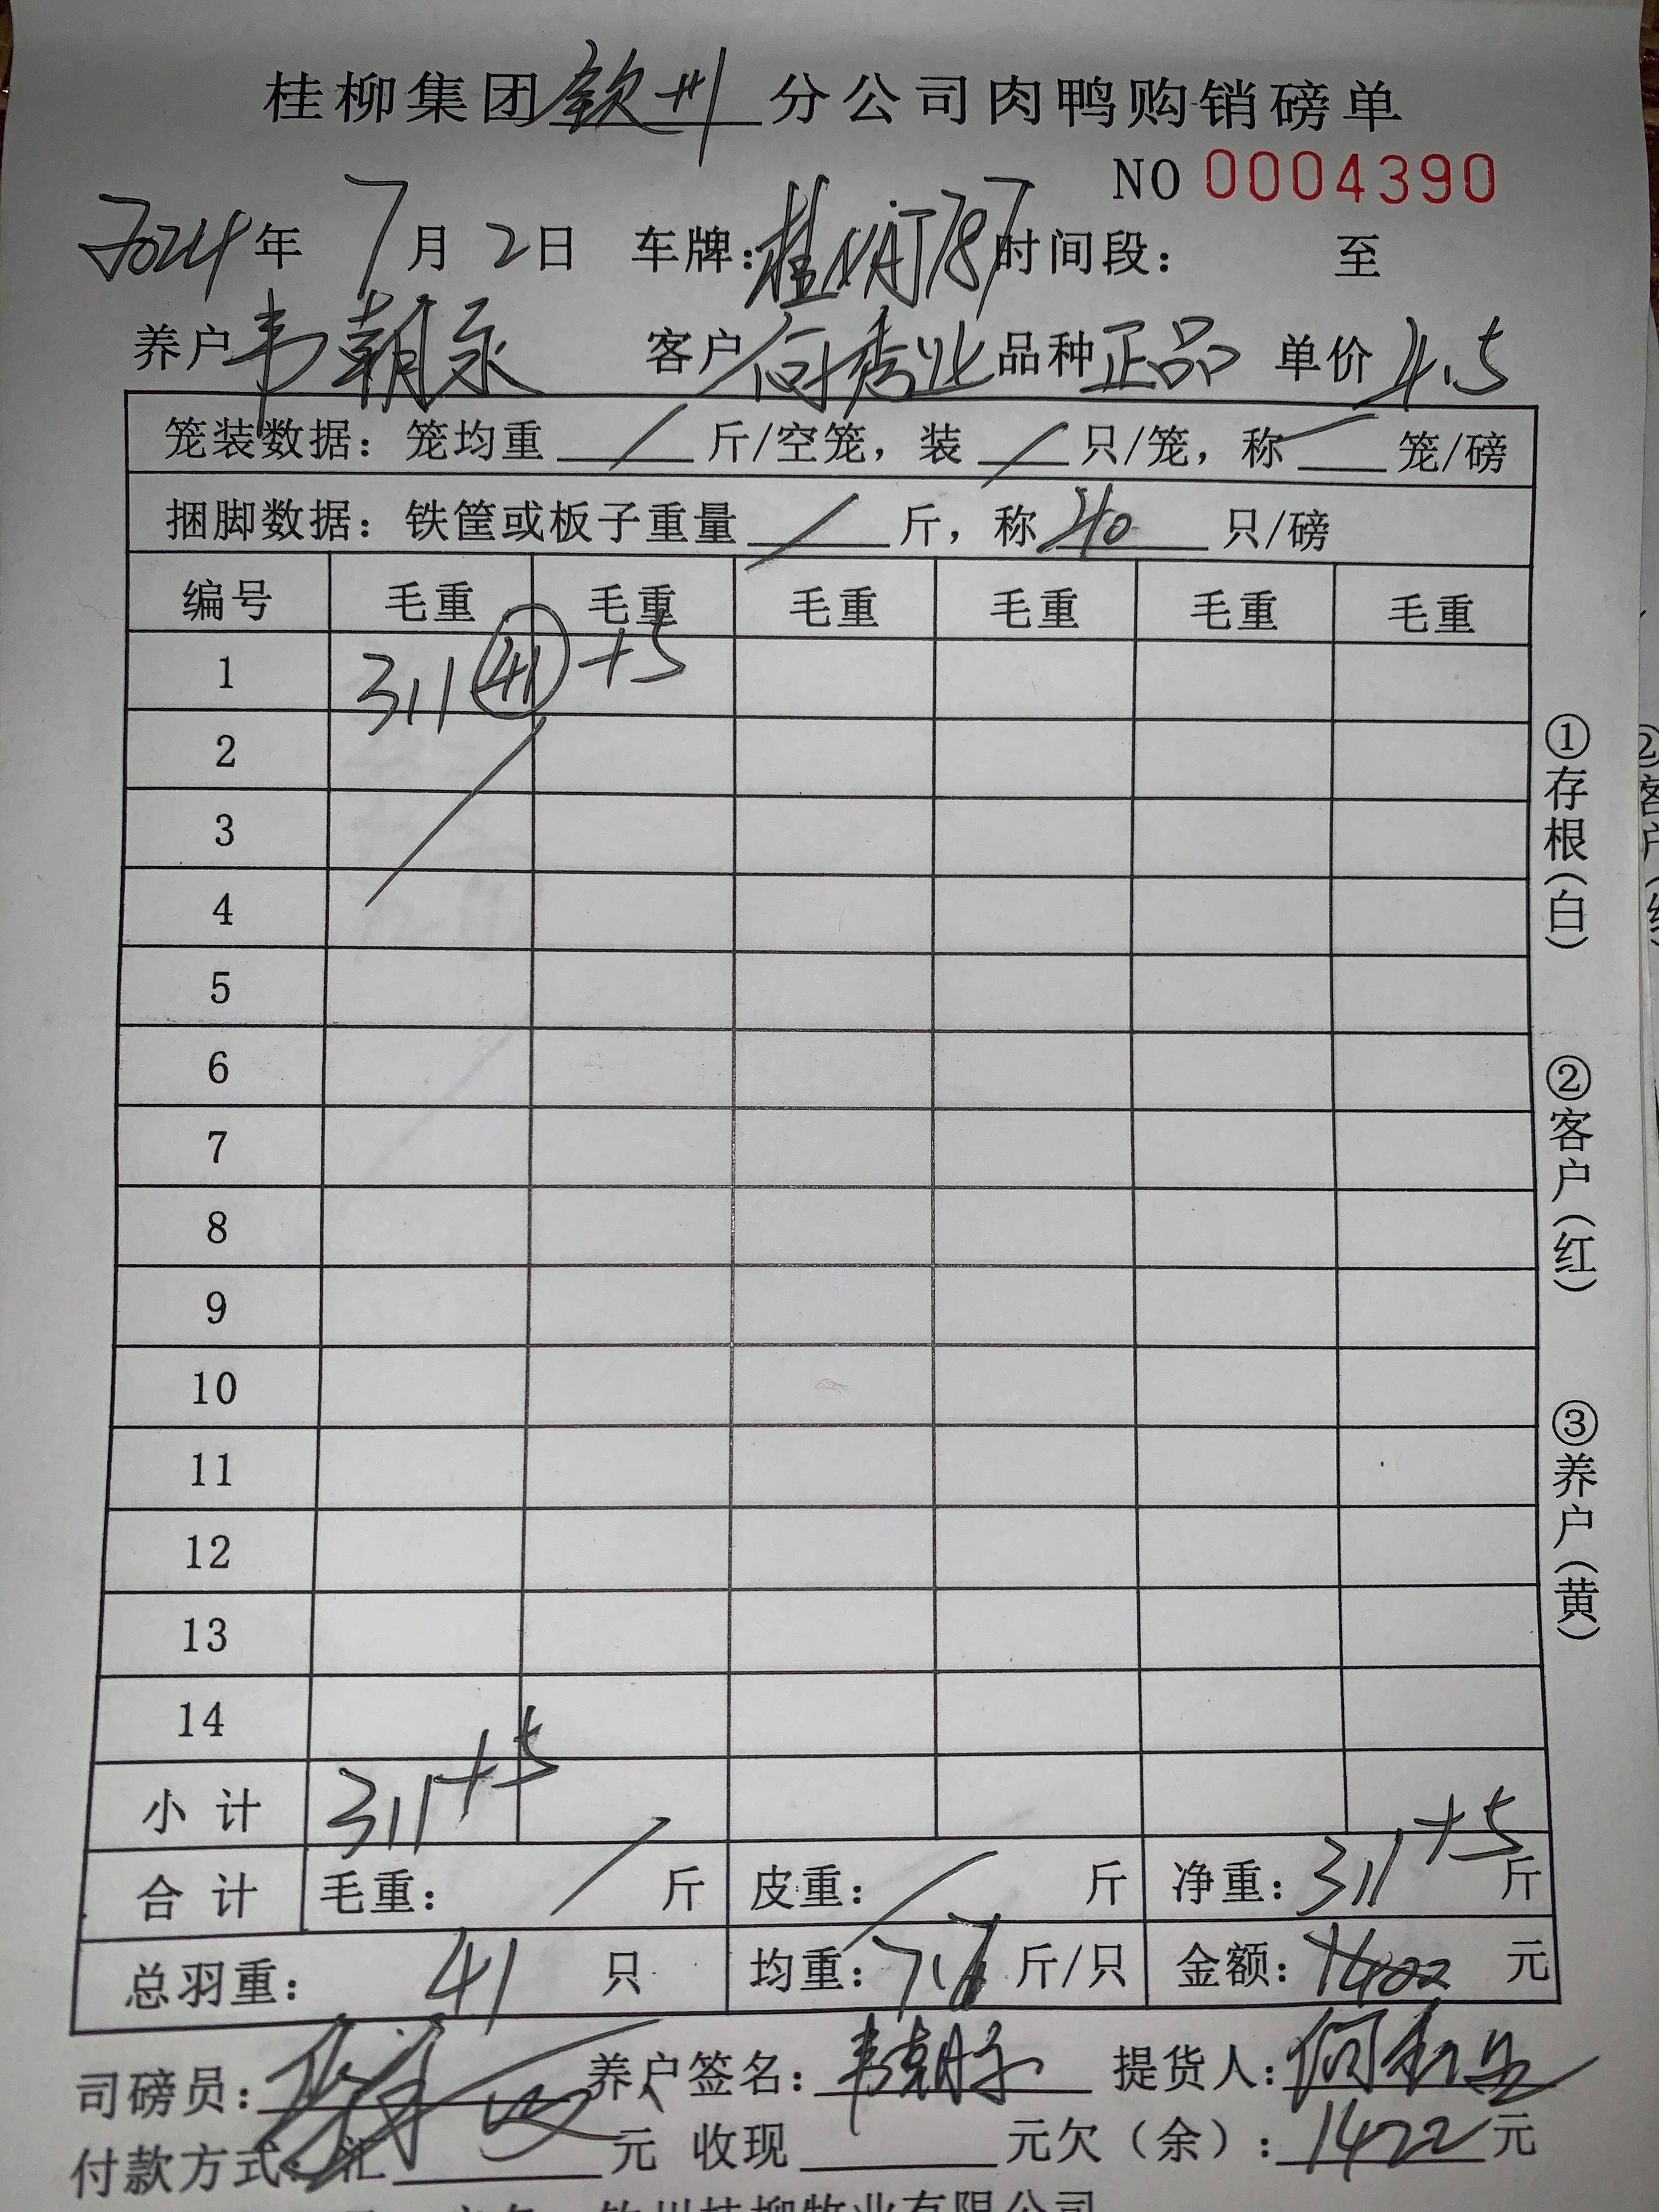 桂柳集团钦州分公司肉鸭购销磅单
NO 0004390
2024年7月2日 车牌:桂NAJ787时间段: 至
养户韦朝永 客户何秀业品种正品 单价4.5
笼装数据:笼均重/斤/空笼,装/只/笼,称/笼/磅
捆脚数据:铁筐或板子重量/斤,称40只/磅
编号 毛重 毛重 毛重 毛重 毛重 毛重
1 311 41 +5
2
3
4
5
6
7
8
9
10
11
12
13
14
小计 311+5
合计 毛重: / 斤 皮重: / 斤 净重:311+5斤
总羽重: 41 只 均重:7.7斤/只 金额:1422元
司磅员: 养户签名:韦朝永 提货人:
付款方式:汇 元 收现 元欠(余):1422元
钦州桂柳牧业有限公司
①存根(白)
②客户(红)
③养户(黄)
②客户